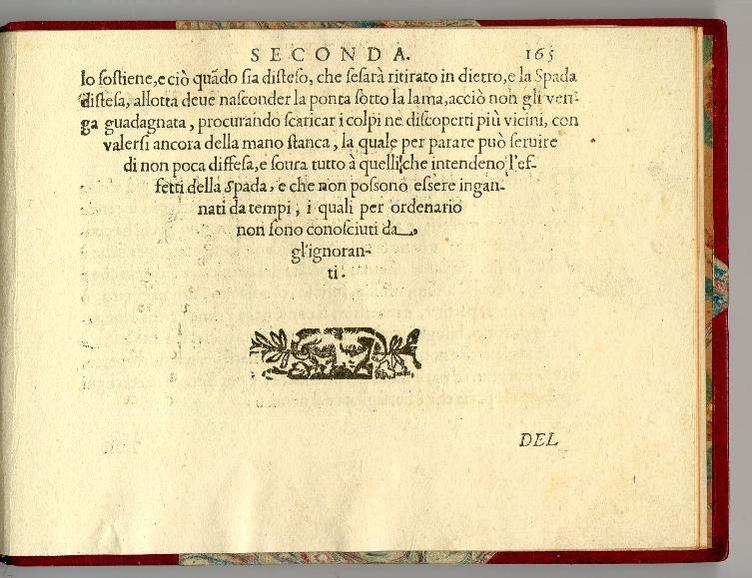 SECONDA. 165
lo ſoſtiene, e ciò quãdo ſia diſteſo, che ſeſarà ritirato in dietro, e la Spada
diſteſa, allotta deue naſconder la ponta ſotto la lama, acciò non gli ven-
ga guadagnata, procurando ſcaricar i colpi ne diſcoperti più vicini, con
valerſi ancora della mano ſtanca, la quale per parare può ſeruire
di non poca diffeſa, e ſoura tutto à quelli, che intendeno l'ef-
fetti della Spada, e che non poſſono eſſere ingan-
nati da tempi, i quali per ordenario
non ſono conoſciuti da
gl'ignoran-
ti.
DEL